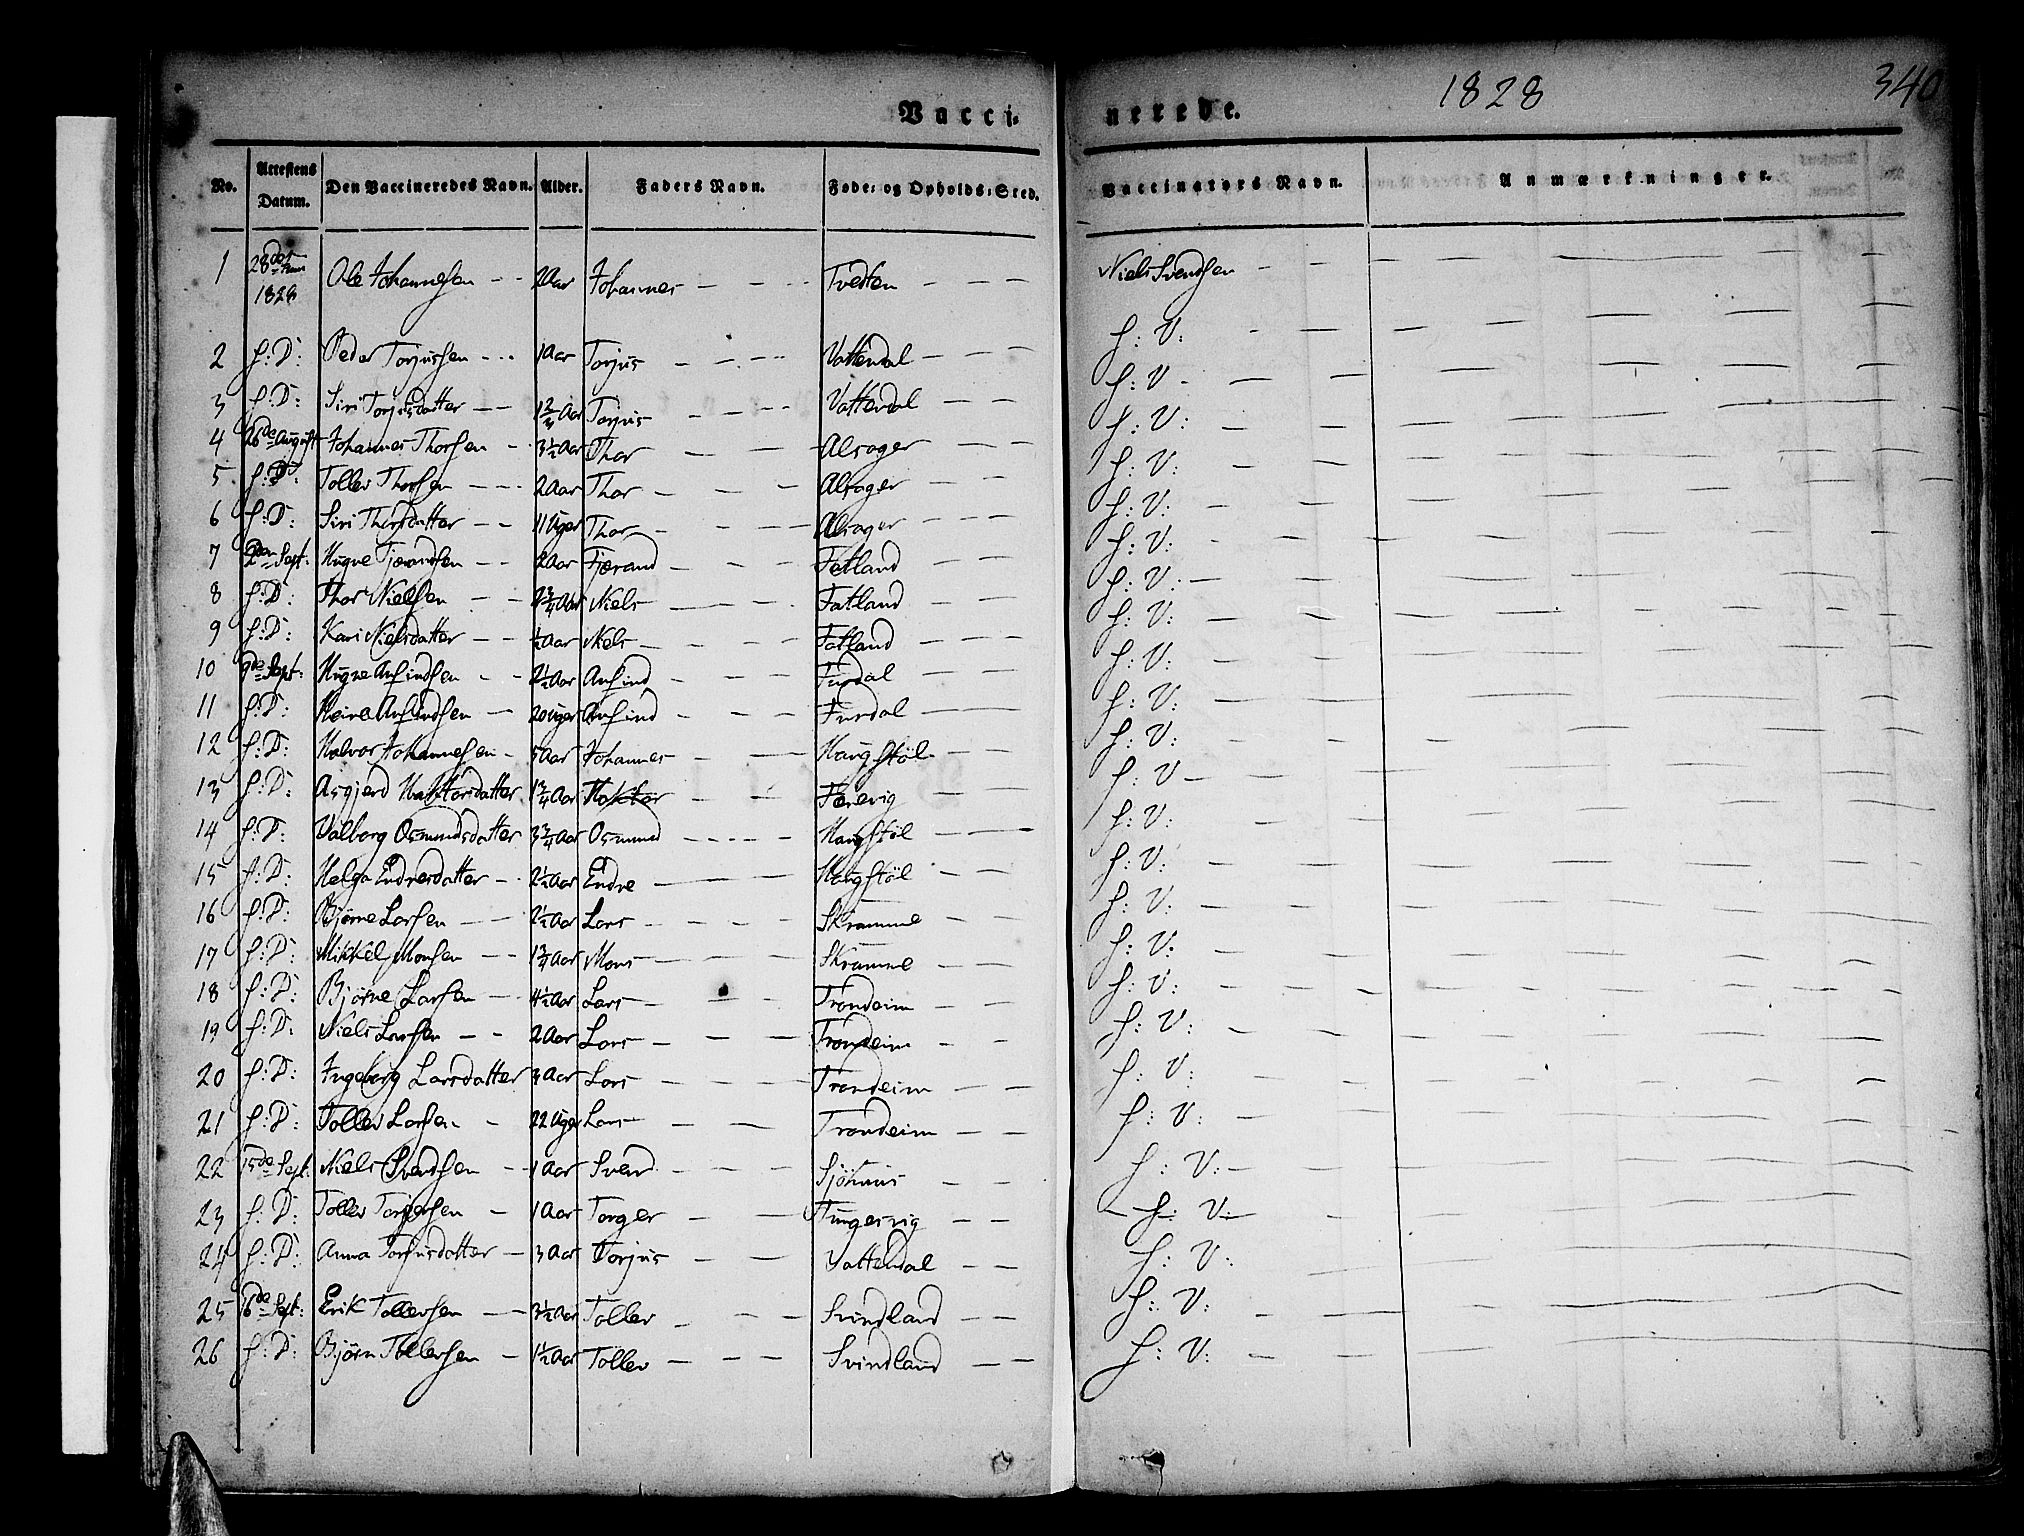 Vacci-nerede. 1828 340
No. Attestens Datum. Den Vaccineredes Navn. Alder. Faders Navn. Føde- og Opholds-Sted. Vaccinators Navn. Anmærkninger.
1 28de 1828 Ole Johannesen 2 Aar Johannes Tvedten Niels Svendsen
2 S: D: Peder Torjussen 1 Aar Torjus Vattendal S: V:
3 S: D: Siri Torjusdatter 1 2/3 Aar Torjus Vattendal S: V
4 26de August Johannes Thorsen 3 1/2 Aar Thor Alsager S: V:
5 S: D: Tollev Thorsen 2 Aar Thor Alsager S: V:
6 S: D: Siri Thorsdatter 11 Uger Thor Alsager S: V:
7 2den Sept: Hugne Tjerandsen 2 Aar Fjerand Fatland S: V:
8 S: D: Thor Nielsen 2 3/4 Aar Niels Fatland S: V:
9 S: D: Kari Nielsdatter 1/2 Aar Niels Fatland S: V:
10 9de Sept: Hugne Anfindsen 2 1/2 Aar Anfind Furdal S: V:
11 S: D: Heine Anfindsen 20 Uger Anfind Furdal S: V:
12 S: D: Halvor Johannesen 5 Aar Johannes Haugstöl S: V:
13 S: D: Asgjerd Haktorsdatter 1 3/4 Aar Haktor Farevig S: V
14 S: D: Valborg Osmundsdatter 3 3/4 Aar Osmund Haugstöl S: V:
15 S: D: Helga Endresdatter 2 1/2 Aar Endre Haugstöl S: V:
16 S: D: Bjørne Larsen 2 1/2 Aar Lars Skramme S: V:
17 S: D: Mikkel Monsen 1 3/4 Aar Mons Skramme S: V:
18 S: D: Bjørne Larsen 4 1/2 Aar Lars Trondeim S: V:
19 S: D: Niels Larsen 2 Aar Lars Trondeim S: V:
20 S: D: Ingeborg Larsdatter 3 Aar Lars Trondeim S: V:
21 S: D: Tollev Larsen 22 Uger Lars Trondeim S: V:
22 15de Sept. Niels Svendsen 1 Aar Svend S: V:
23 S: D: Tollev Torgersen 1 Aar Torger Tungesvig S: V:
24 S: D: Anna Torjusdatter 3 Aar Torjus Vattendal S: V:
25 16de Sept: Erik Tollevsen 3 1/2 Aar Tollev Svindland S: V:
26 S: D: Bjørn Tollevsen 1 1/2 Aar Tollev Svindland S: V: